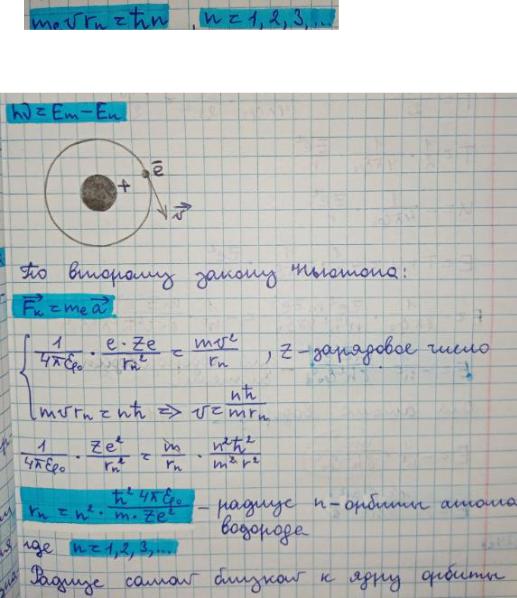 mₑvrₙ = ħn , n = 1, 2, 3, ...
hν = Eₘ − Eₙ
+ ē
v⃗
По второму закону Ньютона:
F⃗ₖ = mₑa⃗
1/(4πε₀) · (e · Ze)/rₙ² = mv²/rₙ , Z – зарядовое число
mvrₙ = nħ ⇒ v = nħ/(mrₙ)
1/(4πε₀) · Ze²/rₙ² = m/rₙ · n²ħ²/(m²r²)
rₙ = n² · (ħ² 4πε₀)/(m · Ze²) – радиус n-орбиты атома
водорода
где n = 1, 2, 3, ...
Радиус самой близкой к ядру орбиты